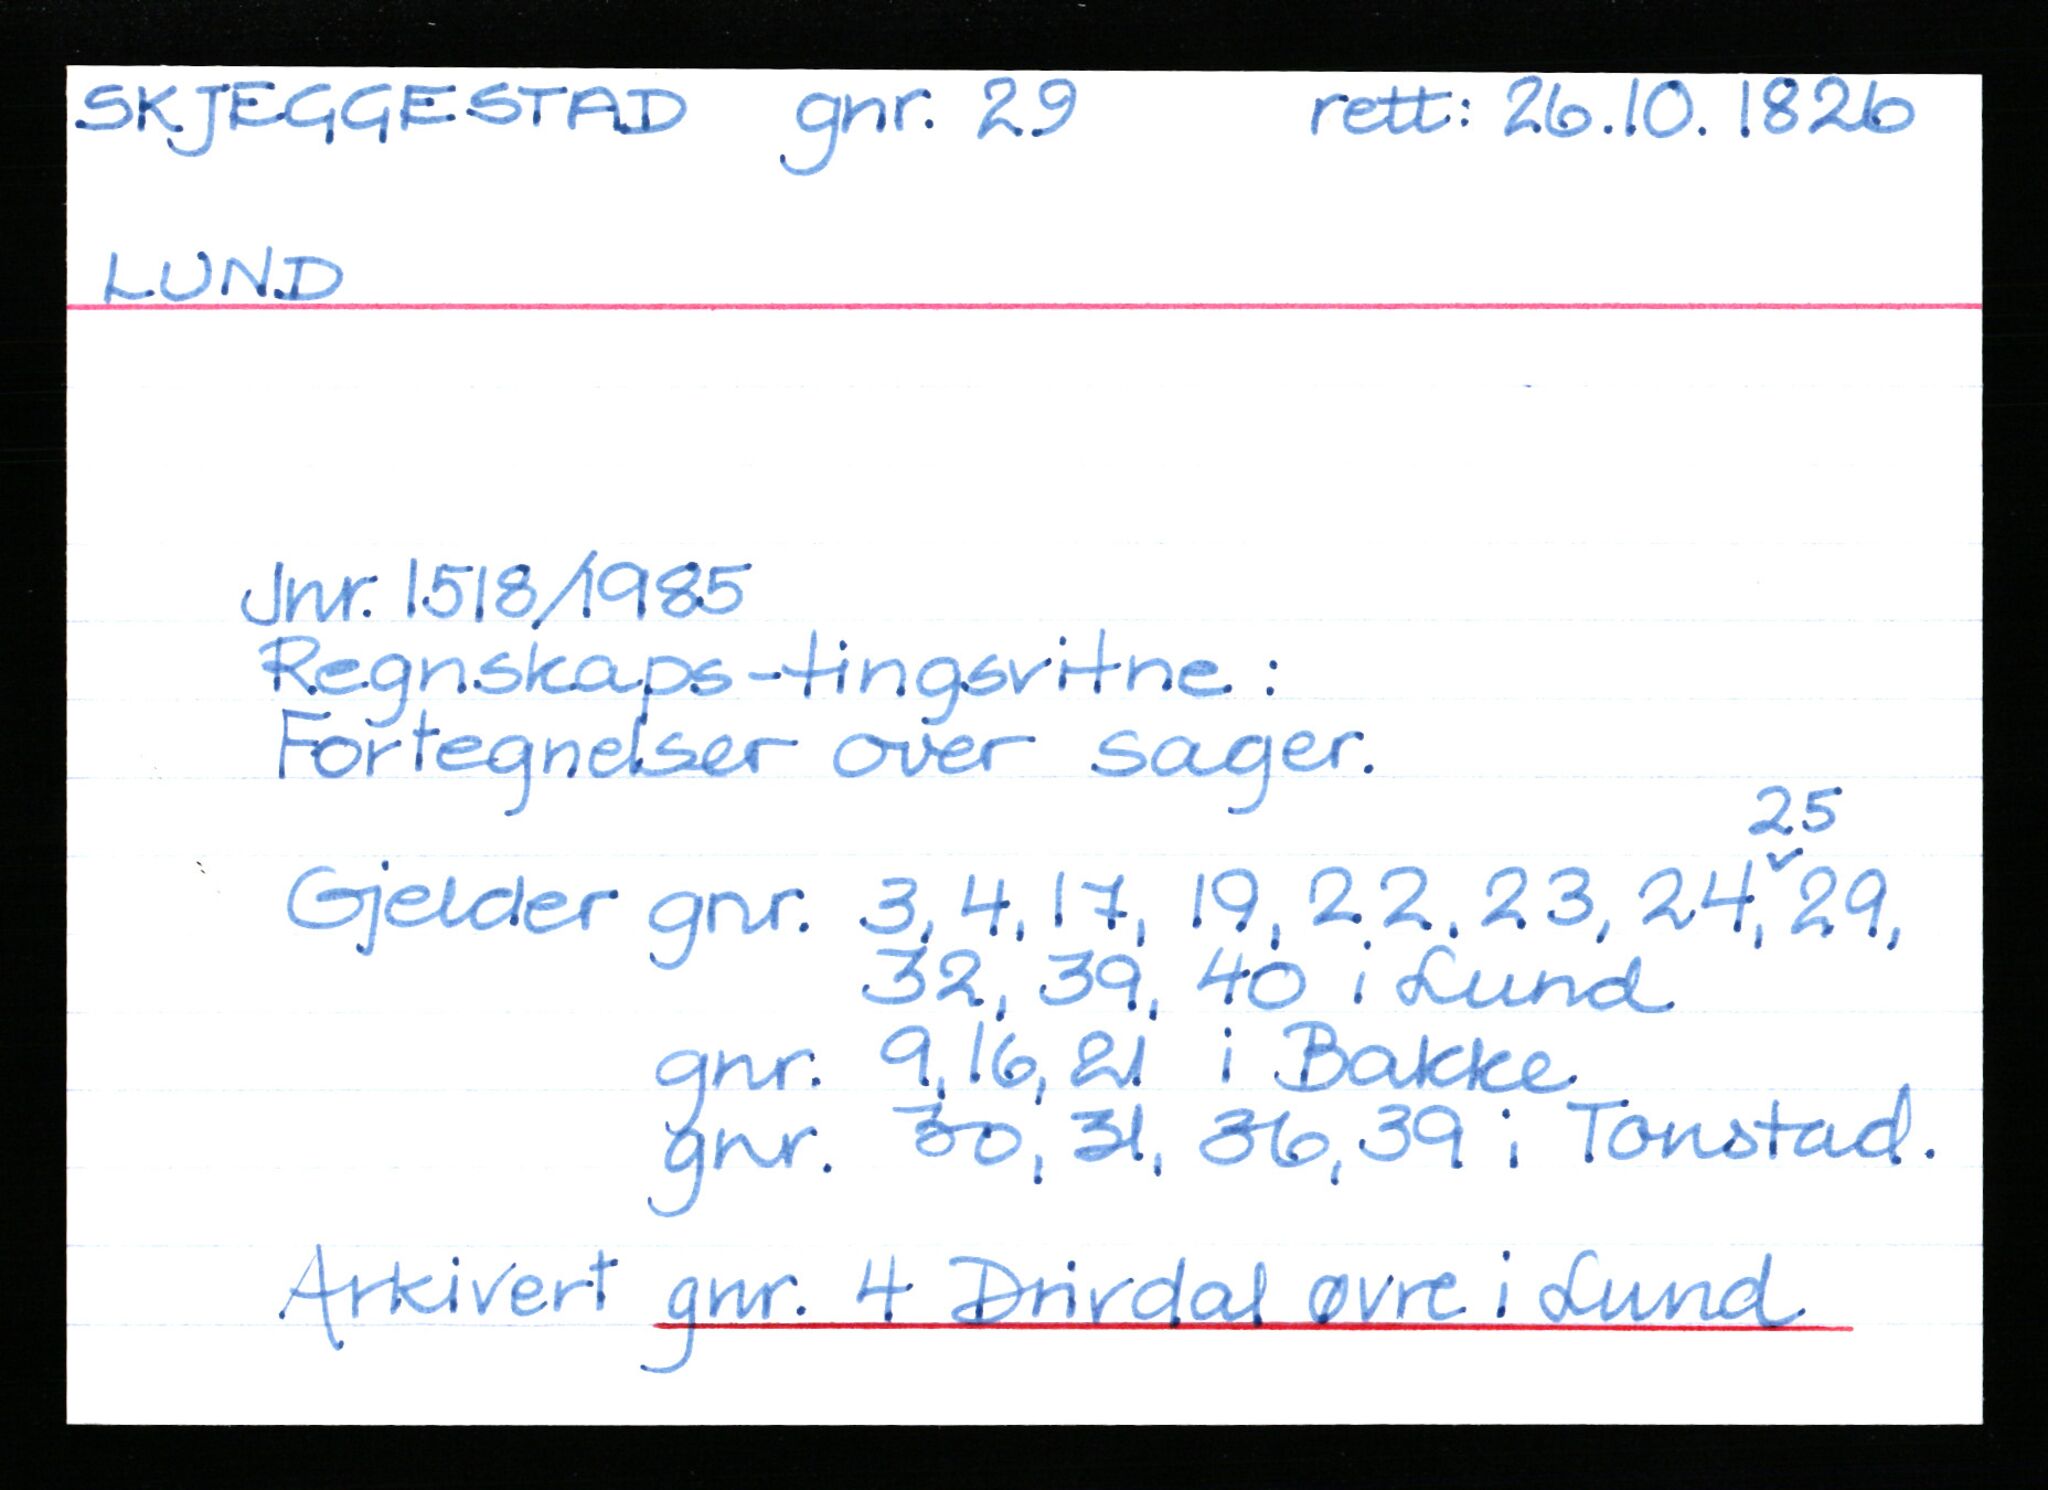 SKJEGGESTAD gnr. 29 rett: 26.10.1826
LUND
Jnr. 1518/1985
Regnskaps-tingsvitne:
Fortegnelser over sager.
25
Gjelder gnr. 3, 4, 17, 19, 22, 23, 24, ˇ29,
32, 39, 40 i Lund
gnr. 9, 16, 21 i Bakke
gnr. 30, 31, 36, 39 i Tonstad.
Arkivert gnr. 4 Drivdal øvre i Lund